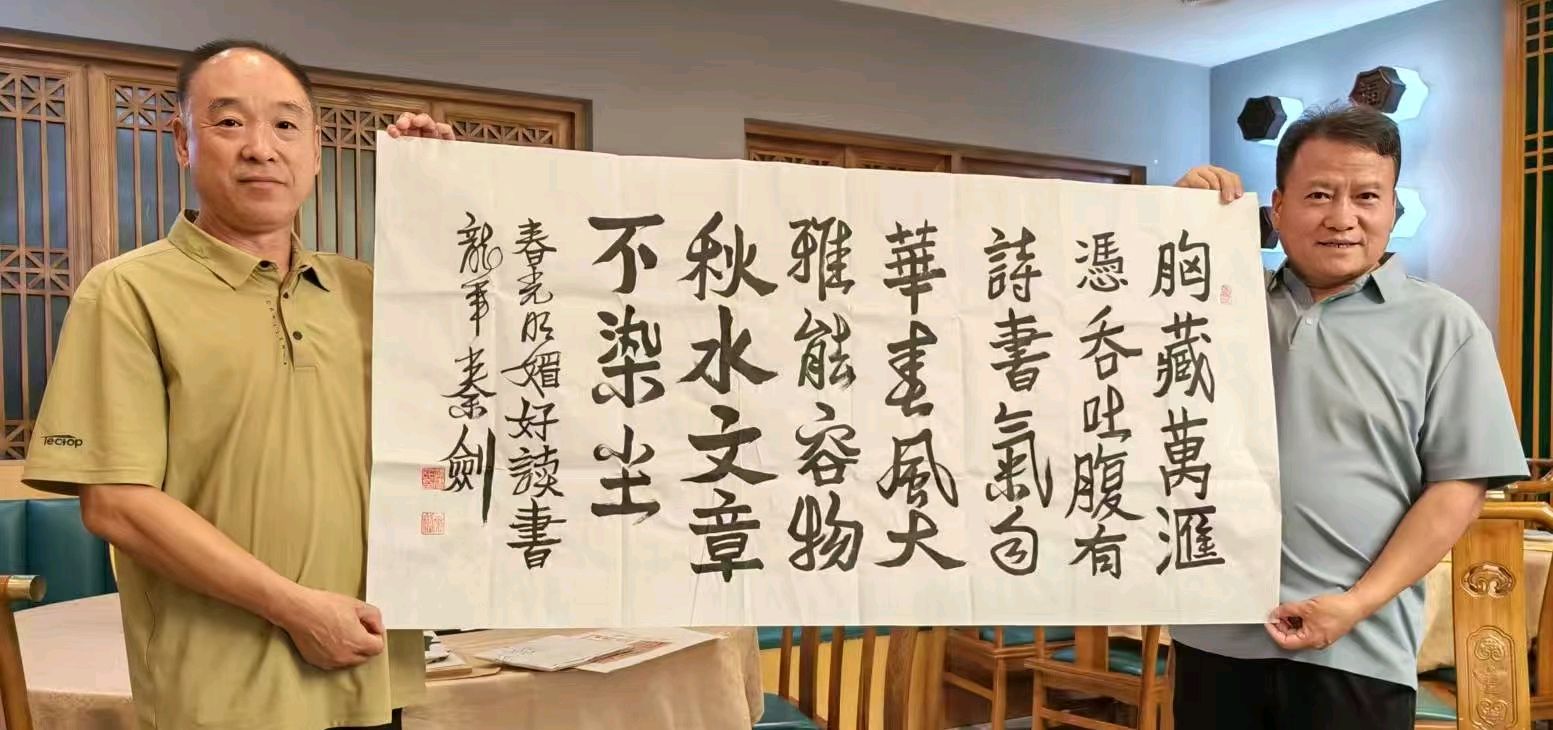 胸藏萬滙
憑吞吐腹有
詩書氣自
華春風大
雅能容物
秋水文章
不染尘
春光明媚好讀書
龍軍 秦劍
Tectop